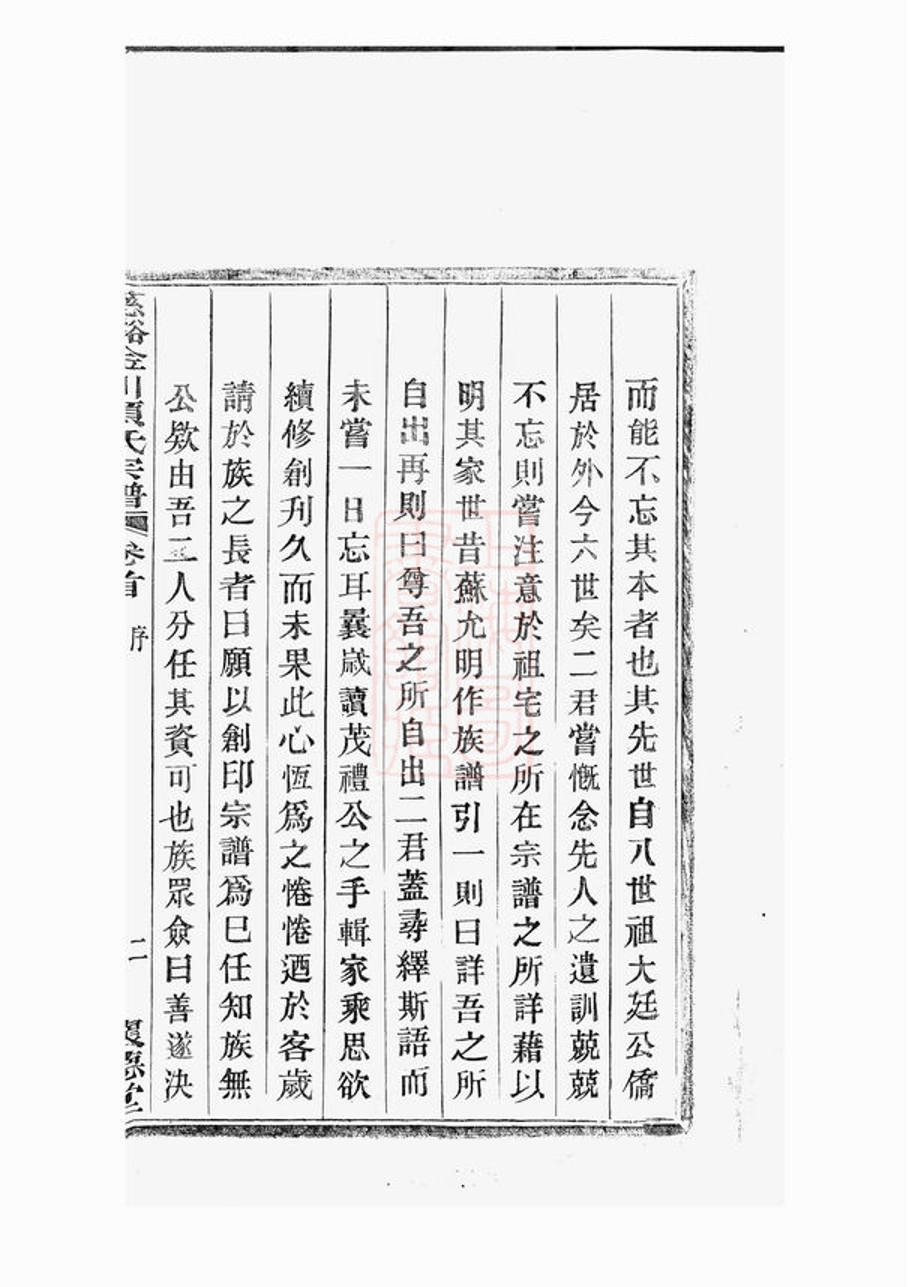 而能不忘其本者也其先世自八世祖大廷公僑
居於外今六世矣二君嘗慨念先人之遺訓兢兢
不忘則嘗注意於祖宅之所在宗譜之所詳藉以
明其家世昔蘇允明作族譜引一則曰詳吾之所
自出再則曰尊吾之所自出二君蓋尋繹斯語而
未嘗一日忘耳曩歲讀茂禮公之手輯家乘思欲
續修創刋久而未果此心恆爲之惓惓迺於客歲
請於族之長者曰願以創印宗譜爲巳任知族無
公欵由吾二人分任其資可也族眾僉曰善遂決
慈谿金川項氏宗譜 卷首 序 二